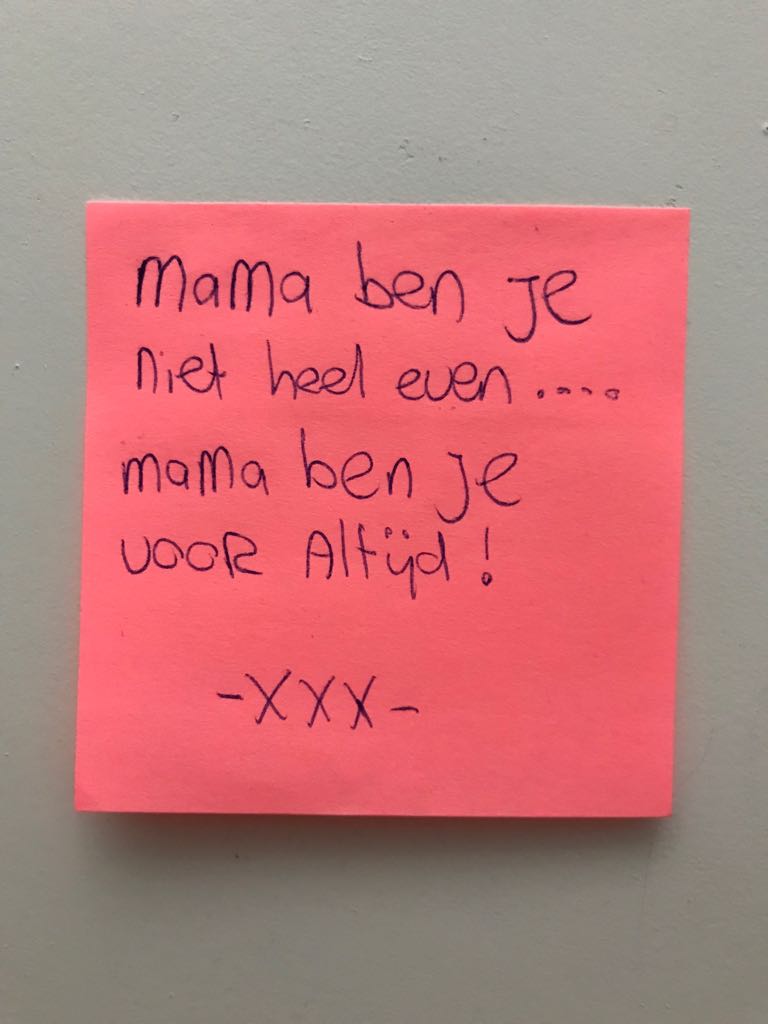 mama ben je
niet heel even .....
mama ben je
voor Altijd !
-XXX-